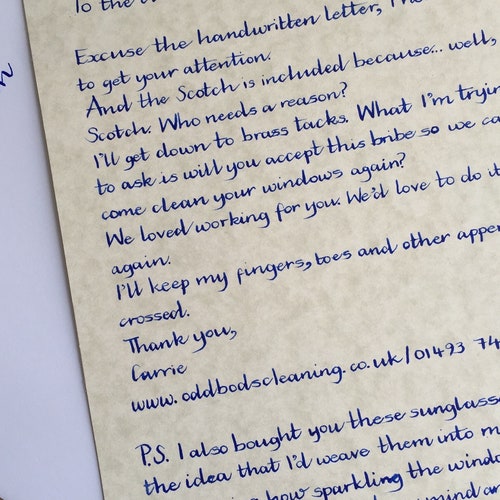 To the
Excuse the handwritten letter, I
to get your attention.
And the Scotch is included because... well,
Scotch. Who needs a reason?
I'll get down to brass tacks. What I'm tryin
to ask is will you accept this bribe so we ca
come clean your windows again?
We loved working for you. We'd love to do it
again.
I'll keep my fingers, toes and other appen
crossed.
Thank you,
Carrie
www.oddbodscleaning.co.uk/01493 74
P.S. I also bought you these sunglasse
the idea that I'd weave them into m
how sparkling the windo
mind an